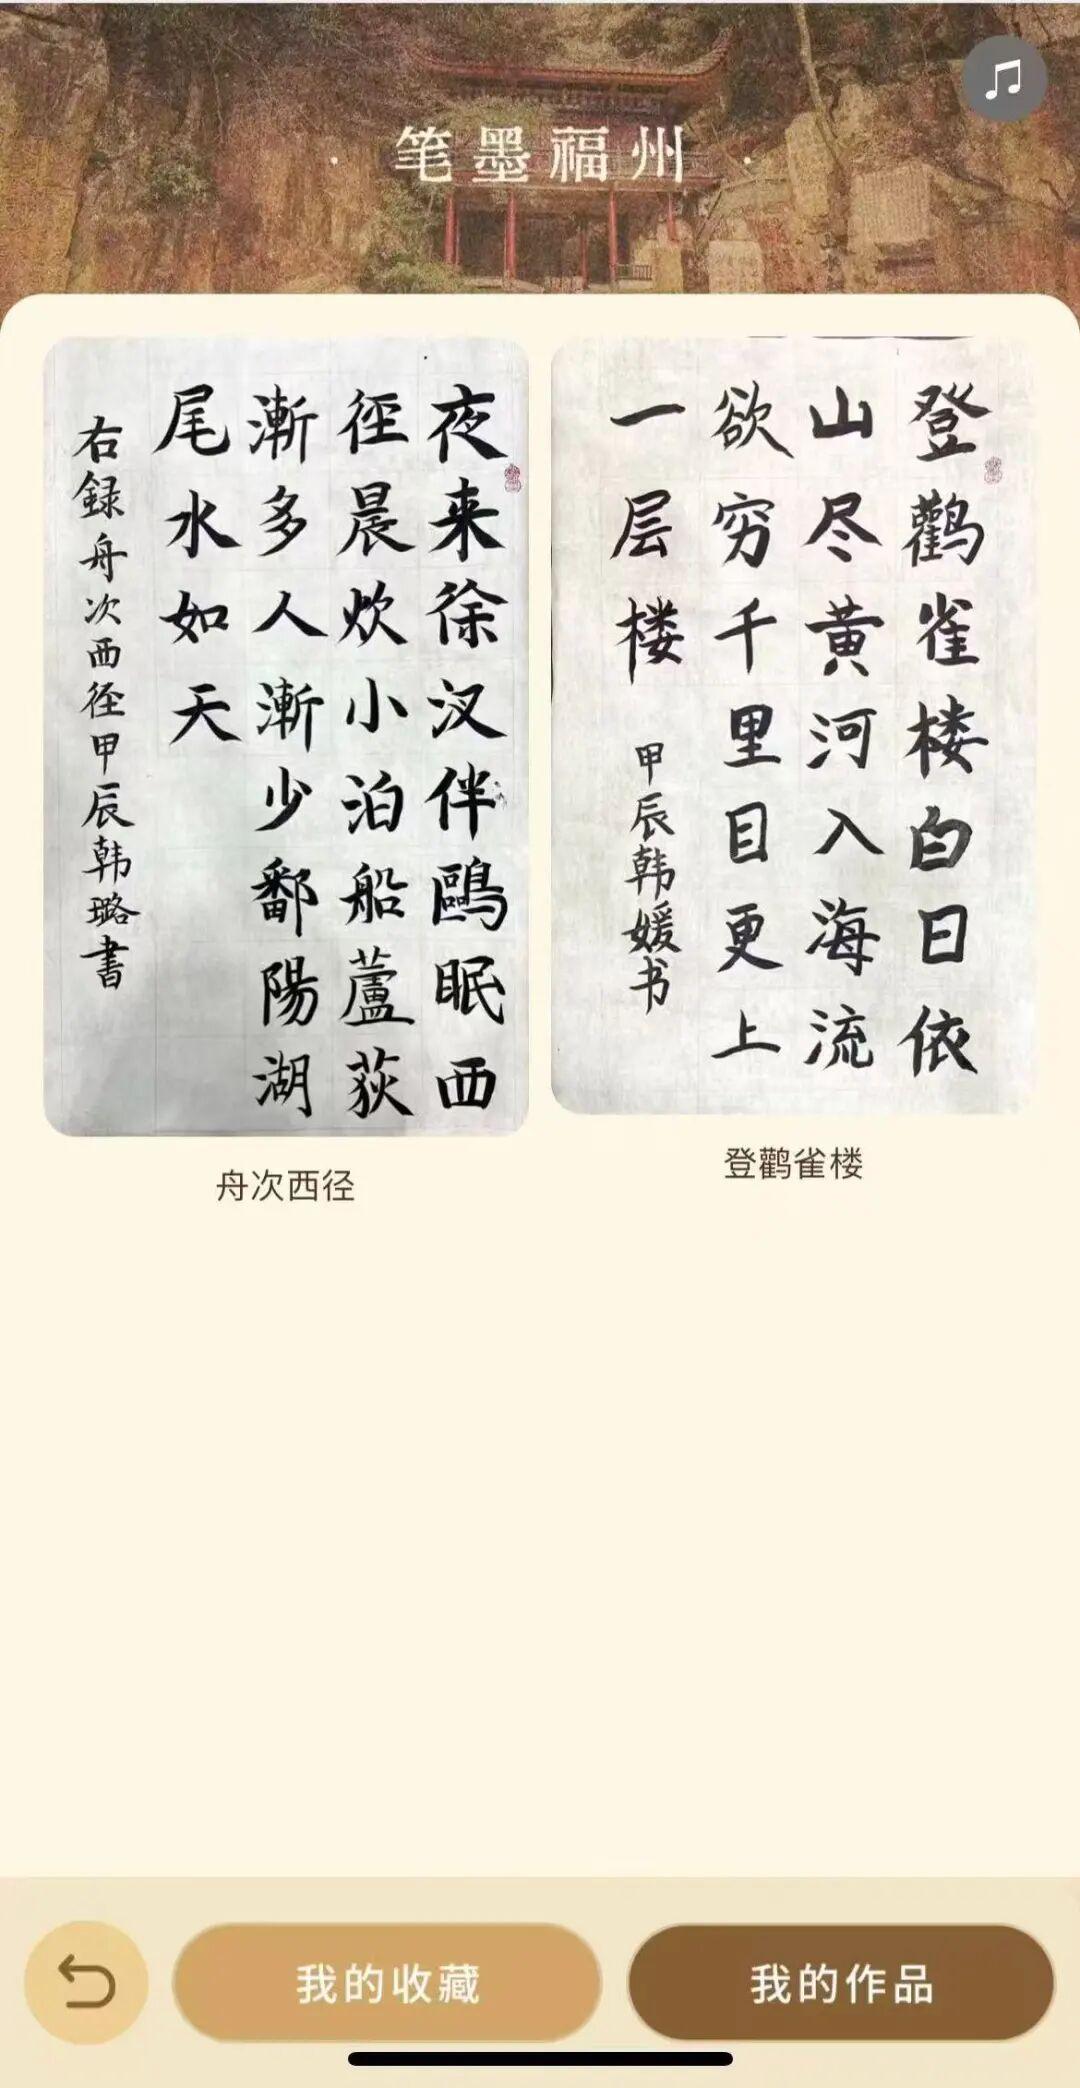 笔墨福州
夜来徐汊伴鷗眠西
徑晨炊小泊船蘆荻
漸多人漸少鄱陽湖
尾水如天
右録舟次西径甲辰韩璐書
登鹳雀楼白日依
山尽黄河入海流
欲穷千里目更上
一层楼
甲辰韩媛书
舟次西径
登鹳雀楼
我的收藏
我的作品